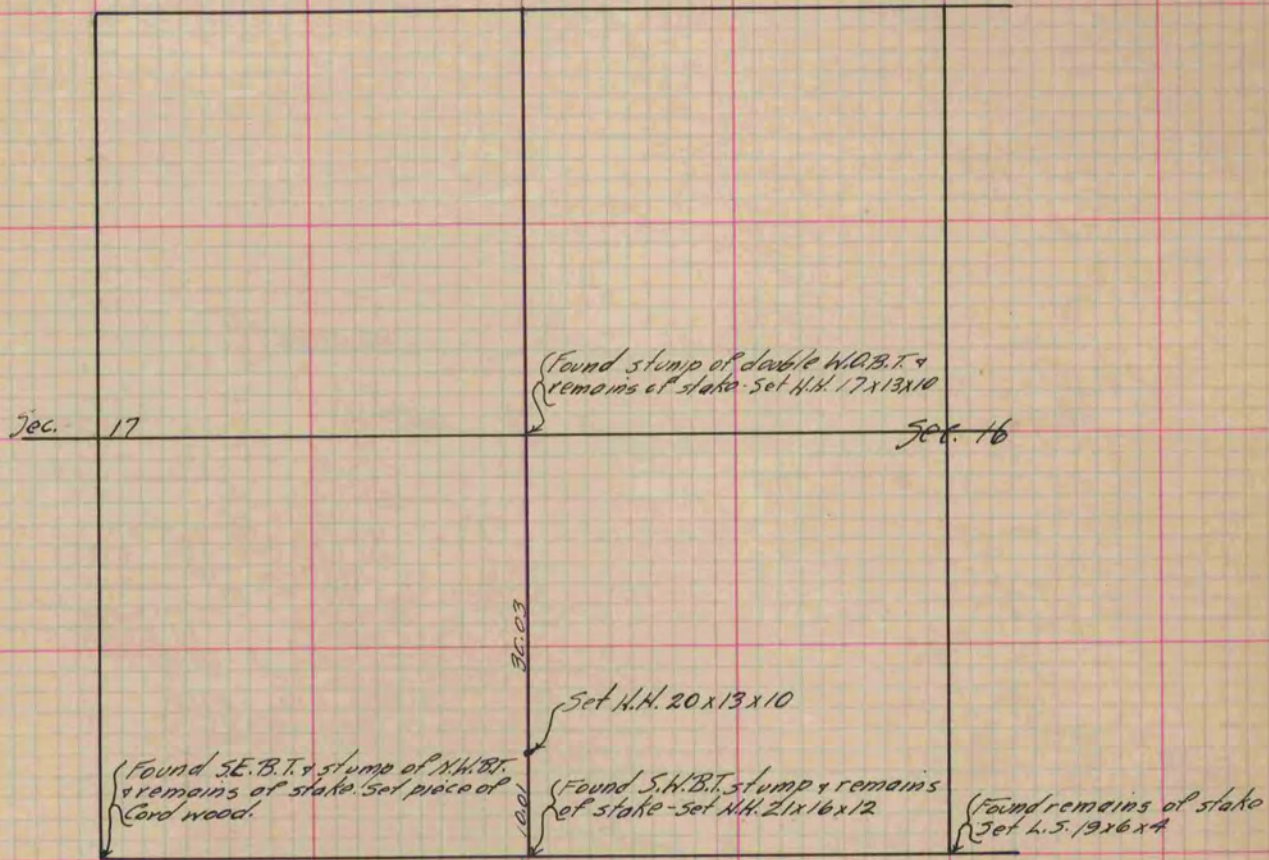 Found stump of double W.O.B.T. &
remains of stake - Set N.H. 17x13x10
Sec. 17
Sec. 16
Set N.H. 20x13x10
10.01
Found S.E.B.T. & stump of N.W.B.T.
& remains of stake. Set piece of
Cord wood.
Found S.W.B.T. stump & remains
of stake - Set N.H. 21x16x12
Found remains of stake
Set L.S. 19x6x4